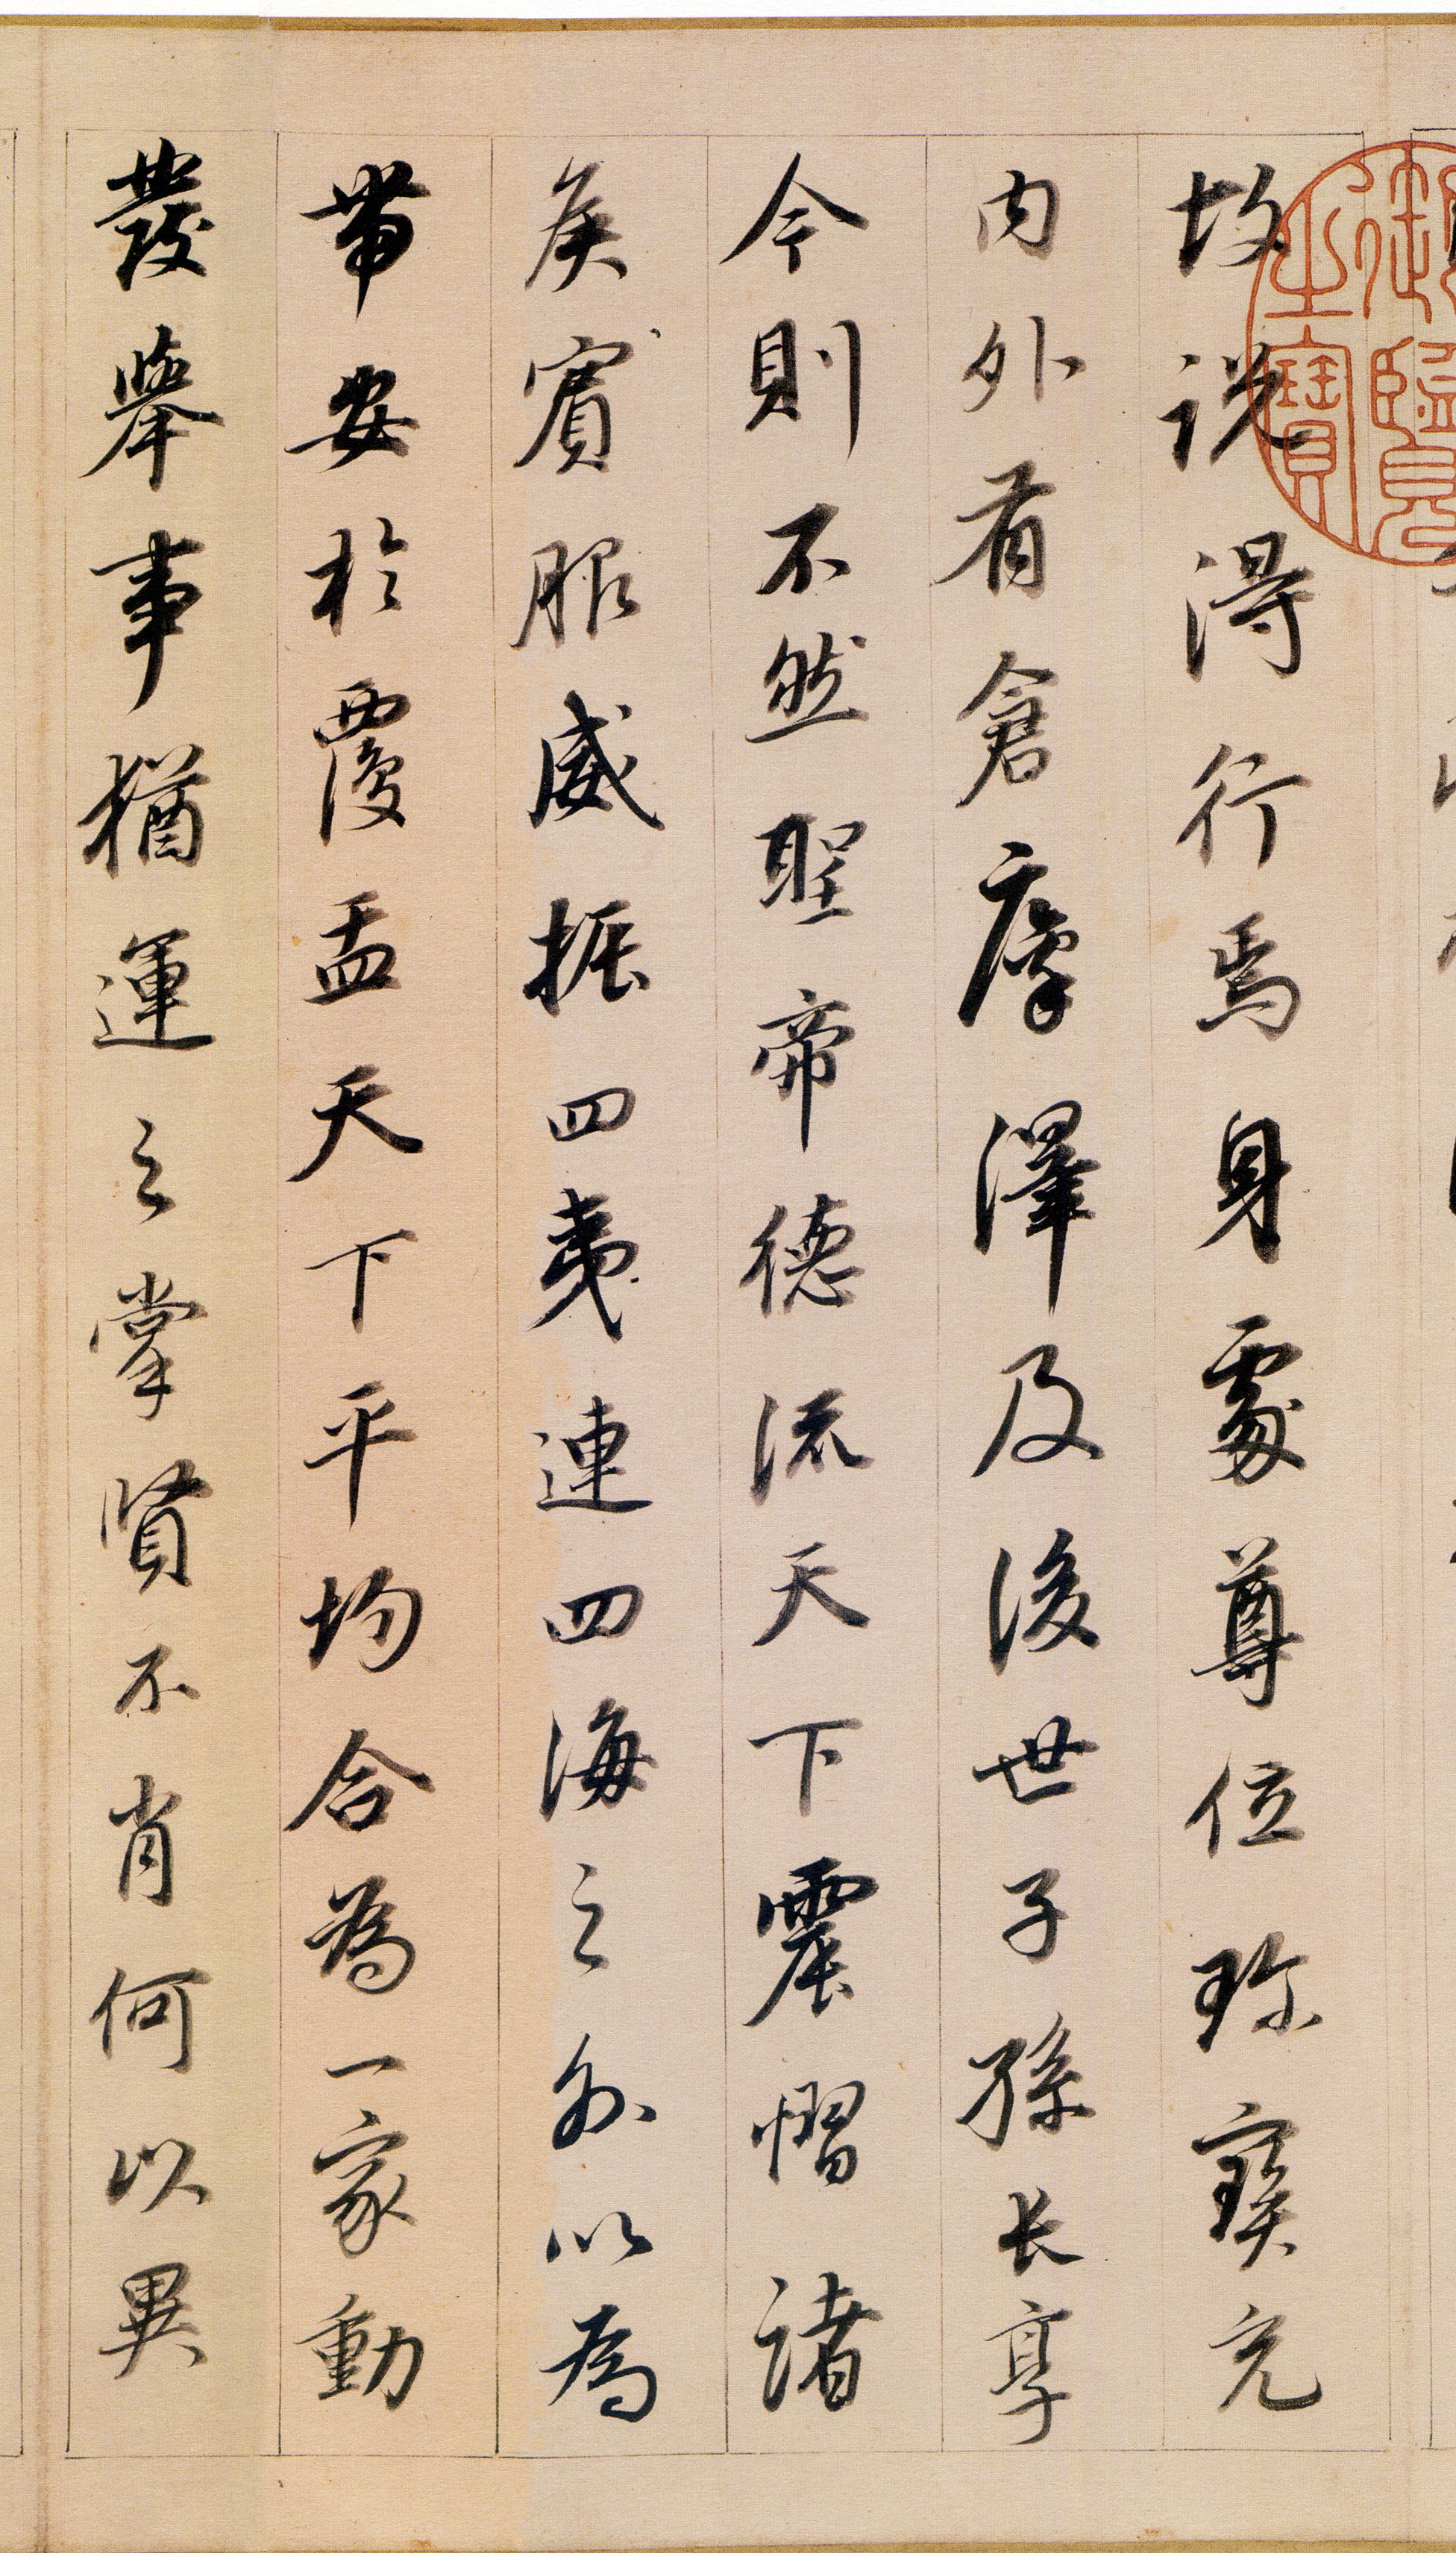 故説得行焉身處尊位珎寶充
内外有倉廩澤及後世子孫长享
今則不然聖帝德流天下震慴諸
矦賓服威振四夷連四海之外以為
帶安於覆盂天下平均合為一家動
發舉事猶運之掌賢不肖何以異